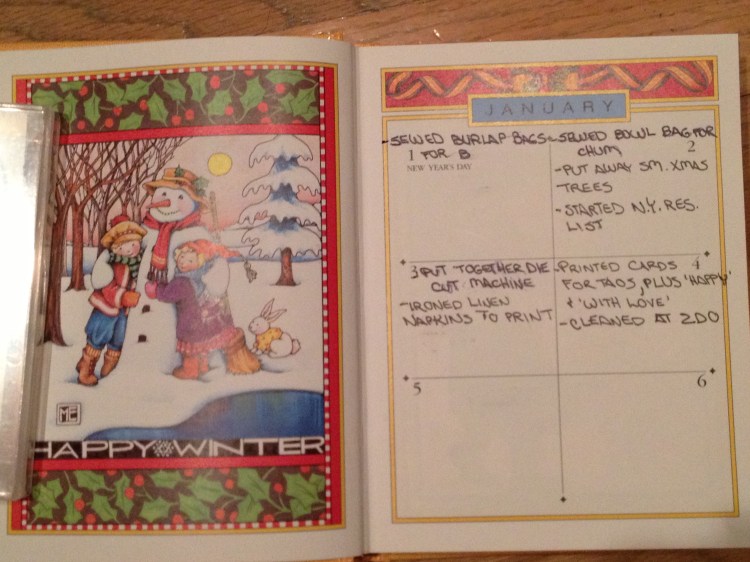 ME
HAPPY WINTER
JANUARY
-SEWED BURLAP BAGS
1 FOR B
NEW YEAR'S DAY
-SEWED BOWL BAG FOR
CHUM 2
-PUT AWAY SM. XMAS
TREES
-STARTED N.Y. RES.
LIST
3 PUT TOGETHER DIE
CUT MACHINE
-IRONED LINEN
NAPKINS TO PRINT
-PRINTED CARDS 4
FOR TAOS, PLUS 'HAPPY'
& 'WITH LOVE'
-CLEANED AT ZDO
5
6